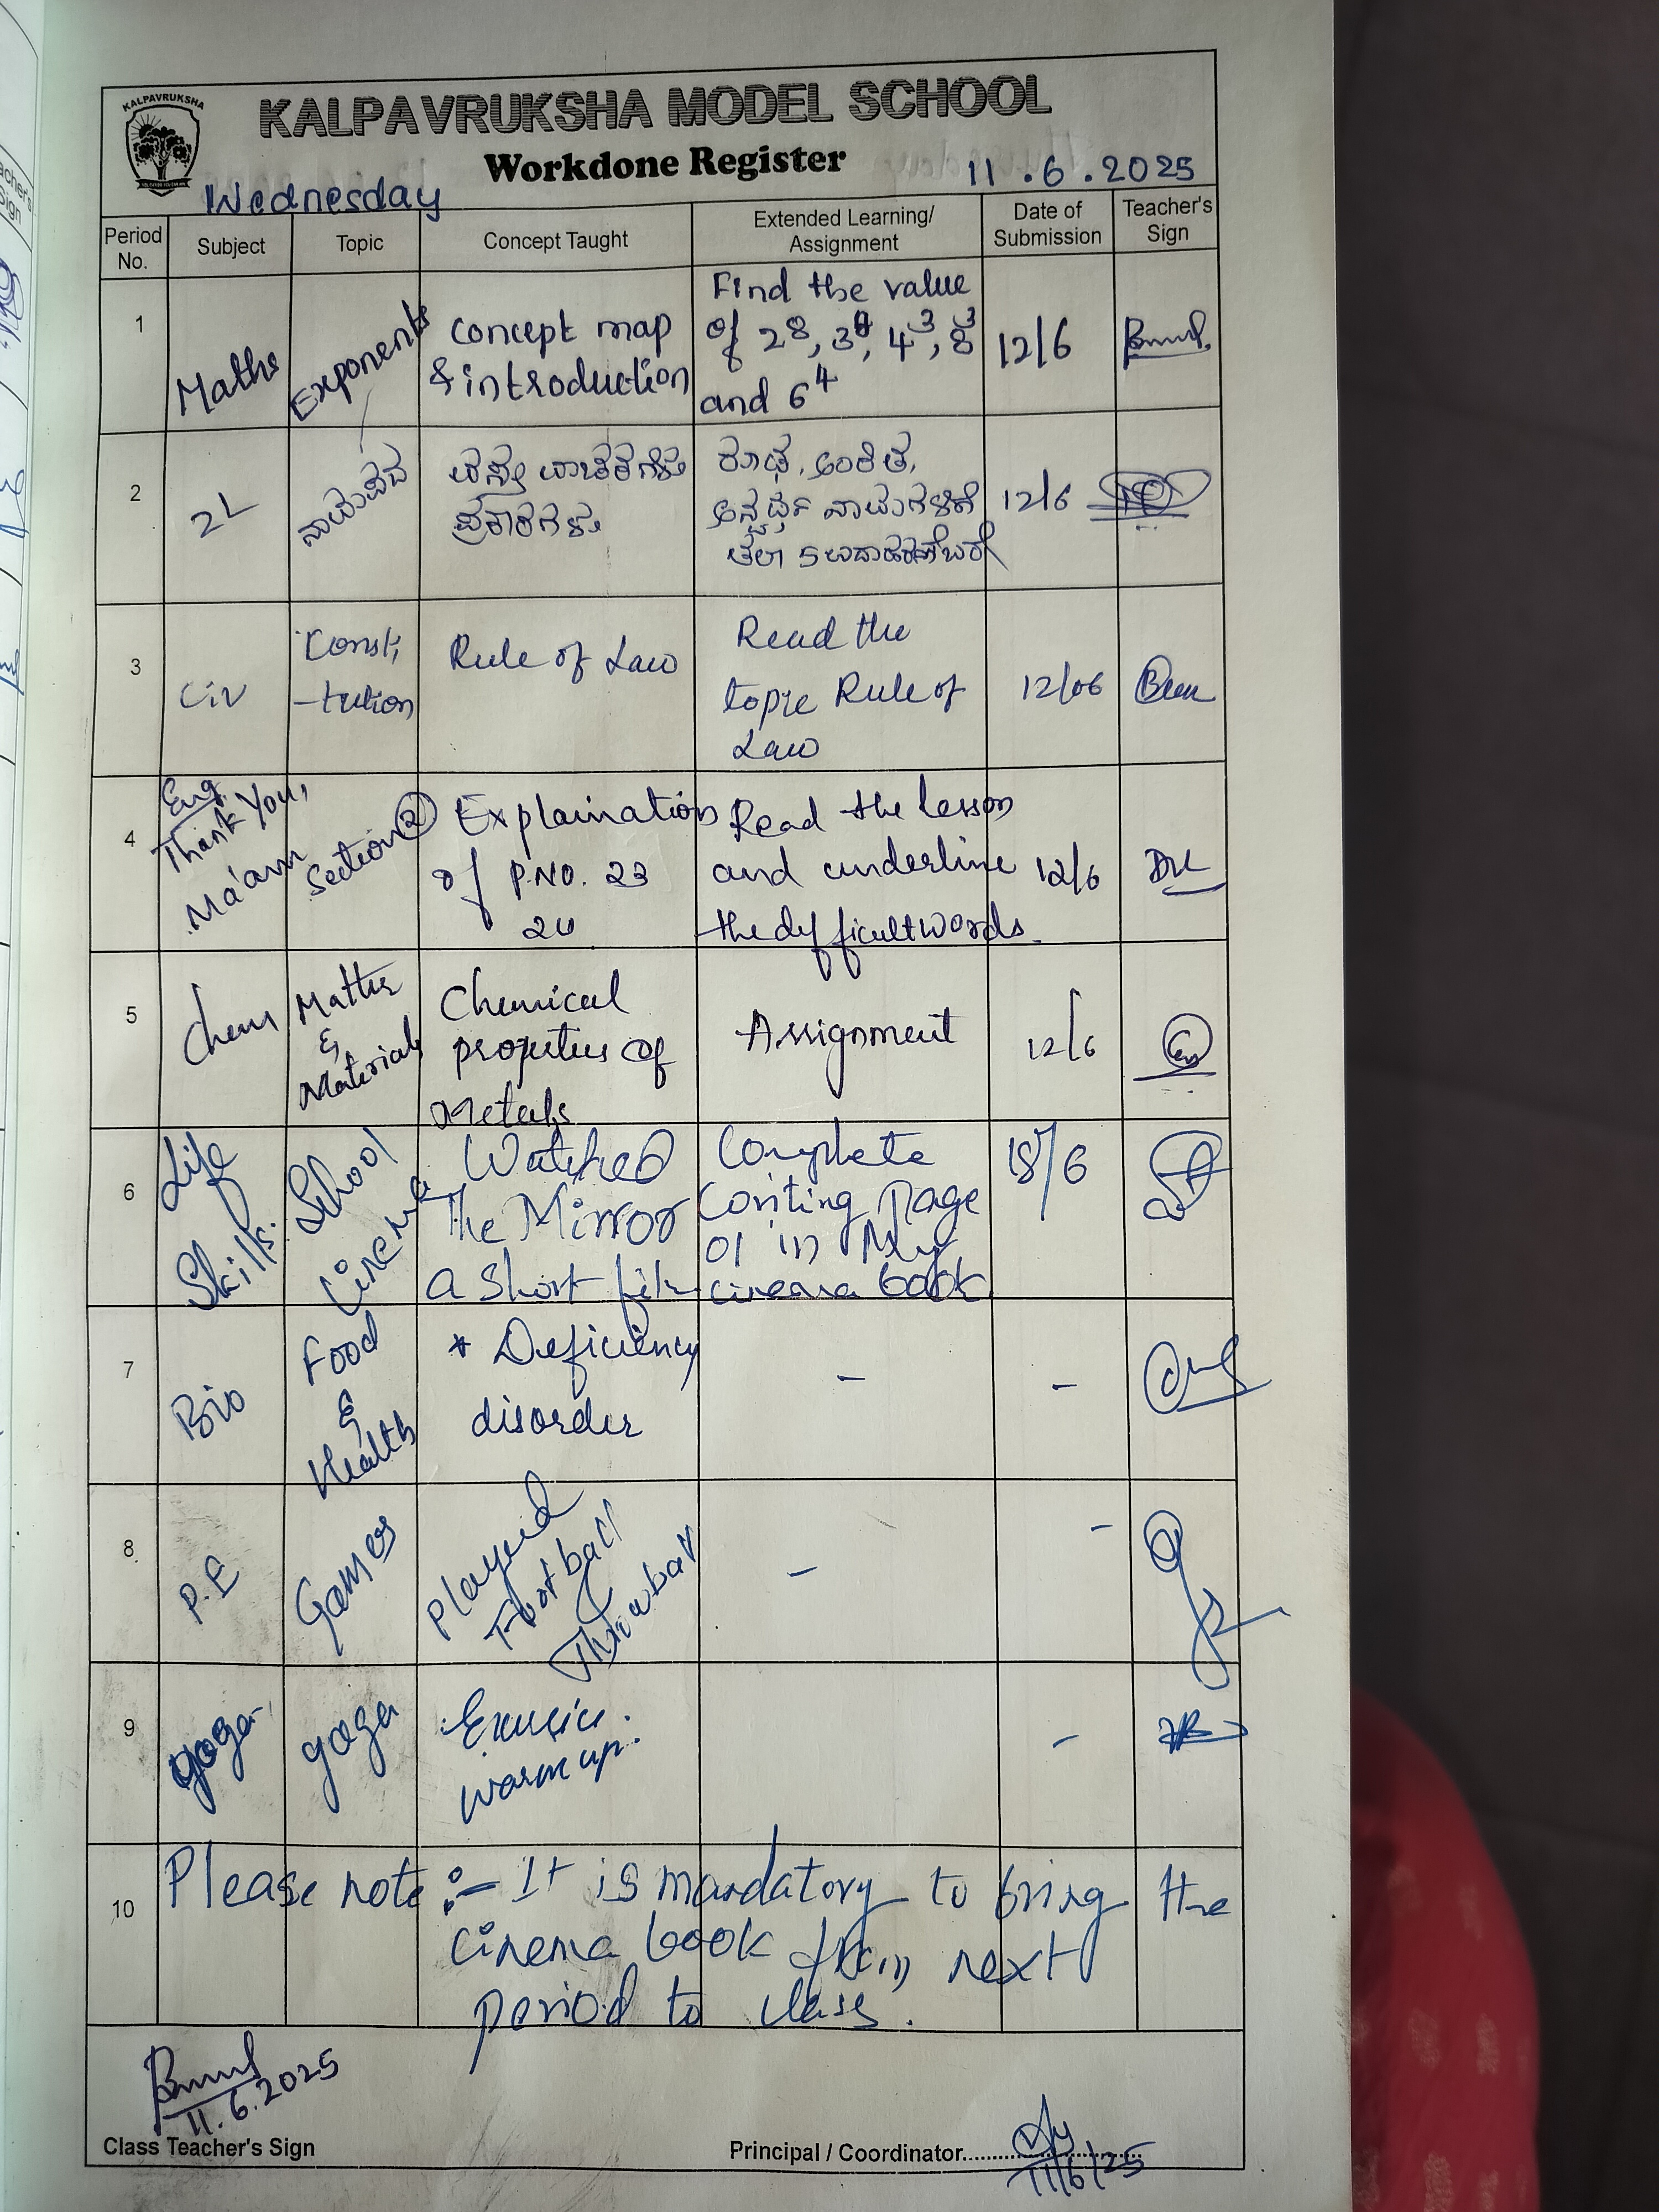 KALPAVRUKSHA
KALPAVRUKSHA MODEL SCHOOL
Workdone Register
Wednesday
11.6.2025
Period No.
Subject
Topic
Concept Taught
Extended Learning/
Assignment
Date of
Submission
Teacher's
Sign
1
Maths
Exponents
Concept map
& introduction
Find the value
of 2⁸, 3⁴, 4³, 8³
and 6⁴
12/6
2
2L
ನಾಮಪದ
ವಸ್ತು ವಾಚಕಗಳು
ಪ್ರಕಾರಗಳು
ರೂಢ, ಅಂಕಿತ,
ಅನ್ವರ್ಥ ನಾಮಗಳಿಗೆ
ತಲಾ 5 ಉದಾಹರಣೆ ಬರೆ
12/6
3
Civ
Consti
-tution
Rule of Law
Read the
topic Rule of
Law
12/06
4
Eng.
Thank You,
Ma'am
Section 2
Explaination
of P.NO. 23
24
Read the lesson
and underline
the difficult words.
12/6
5
Chem
Matter
&
Materials
Chemical
properties of
Metals
Assignment
12/6
6
Life
Skills.
School
Cinema
Watched
The Mirror
a short film
Complete
writing page
01 in My
cinema book
18/6
7
Bio
Food
&
Health
* Deficiency
disorder
-
-
8
P.E
Games
Played
Football
Throwball
-
-
9
yoga
yoga
Exercise.
warm up.
-
10
Please note :- It is mandatory to bring the
cinema book from next
period to class.
11.6.2025
Class Teacher's Sign
Principal / Coordinator
11/6/25